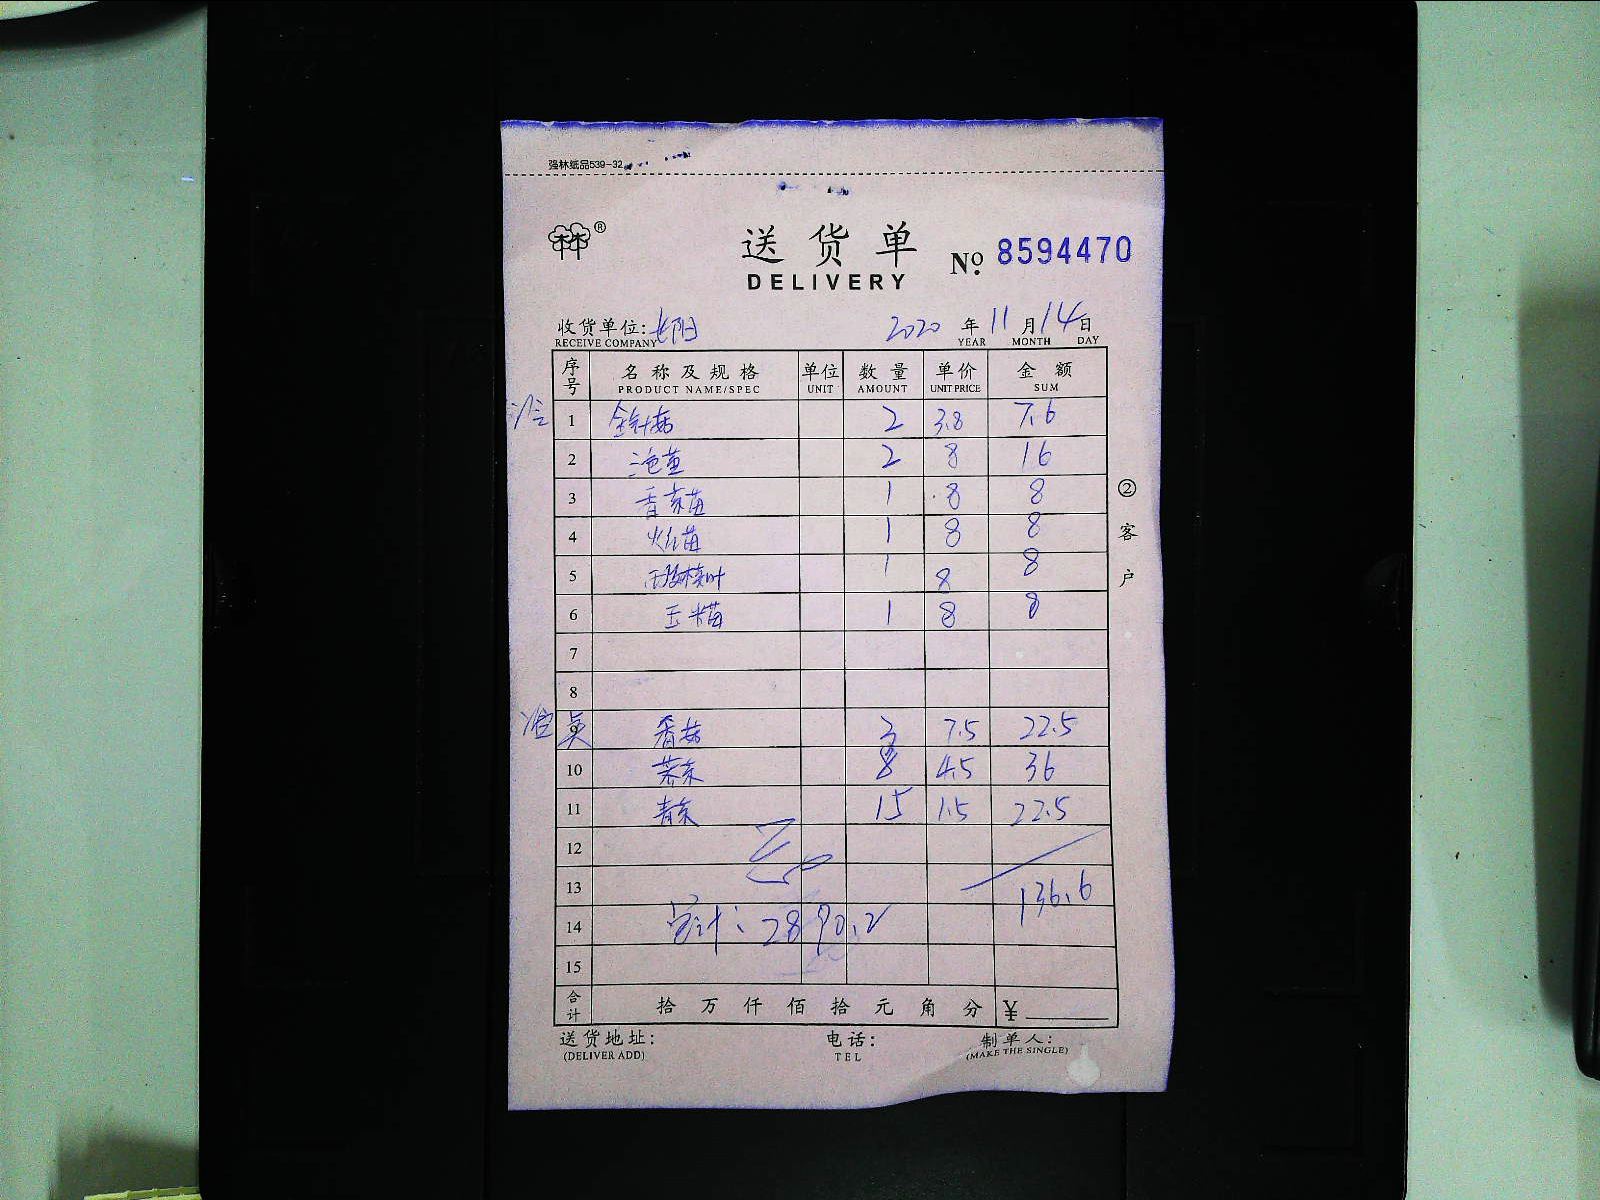 强林纸品539-32
林林®
送货单
DELIVERY
№ 8594470
收货单位: 长阳
RECEIVE COMPANY
2020 年 11 月 14 日
YEAR MONTH DAY
序号 名称及规格 单位 数量 单价 金额
PRODUCT NAME/SPEC UNIT AMOUNT UNIT PRICE SUM
1 金针菇 2 3.8 7.6
2 2 8 16
3 1 8 8
4 1 8 8
5 1 8 8
6 玉米苗 1 8 8
7
8
9 香菇 3 7.5 22.5
10 8 4.5 36
11 青菜 15 1.5 22.5
12
13 136.6
14 总计: 2890.2
15
合计 拾 万 仟 佰 拾 元 角 分 ¥
② 客户
送货地址: 电话: 制单人:
(DELIVER ADD) TEL (MAKE THE SINGLE)